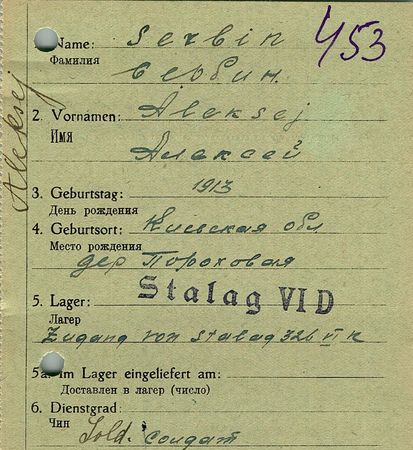 453
Name: Serbin
Фамилия Сербин.
Aleksej
2. Vornamen: Aleksej
Имя Алексей
3. Geburtstag: 1913
День рождения
4. Geburtsort: Киевская обл
Место рождения
дер Пороховая
5. Lager: Stalag VI D
Лагерь
Zugang von Stalag 326 VI K
5a. Im Lager eingeliefert am:
Доставлен в лагер (число)
6. Dienstgrad:
Чин Sold. солдат